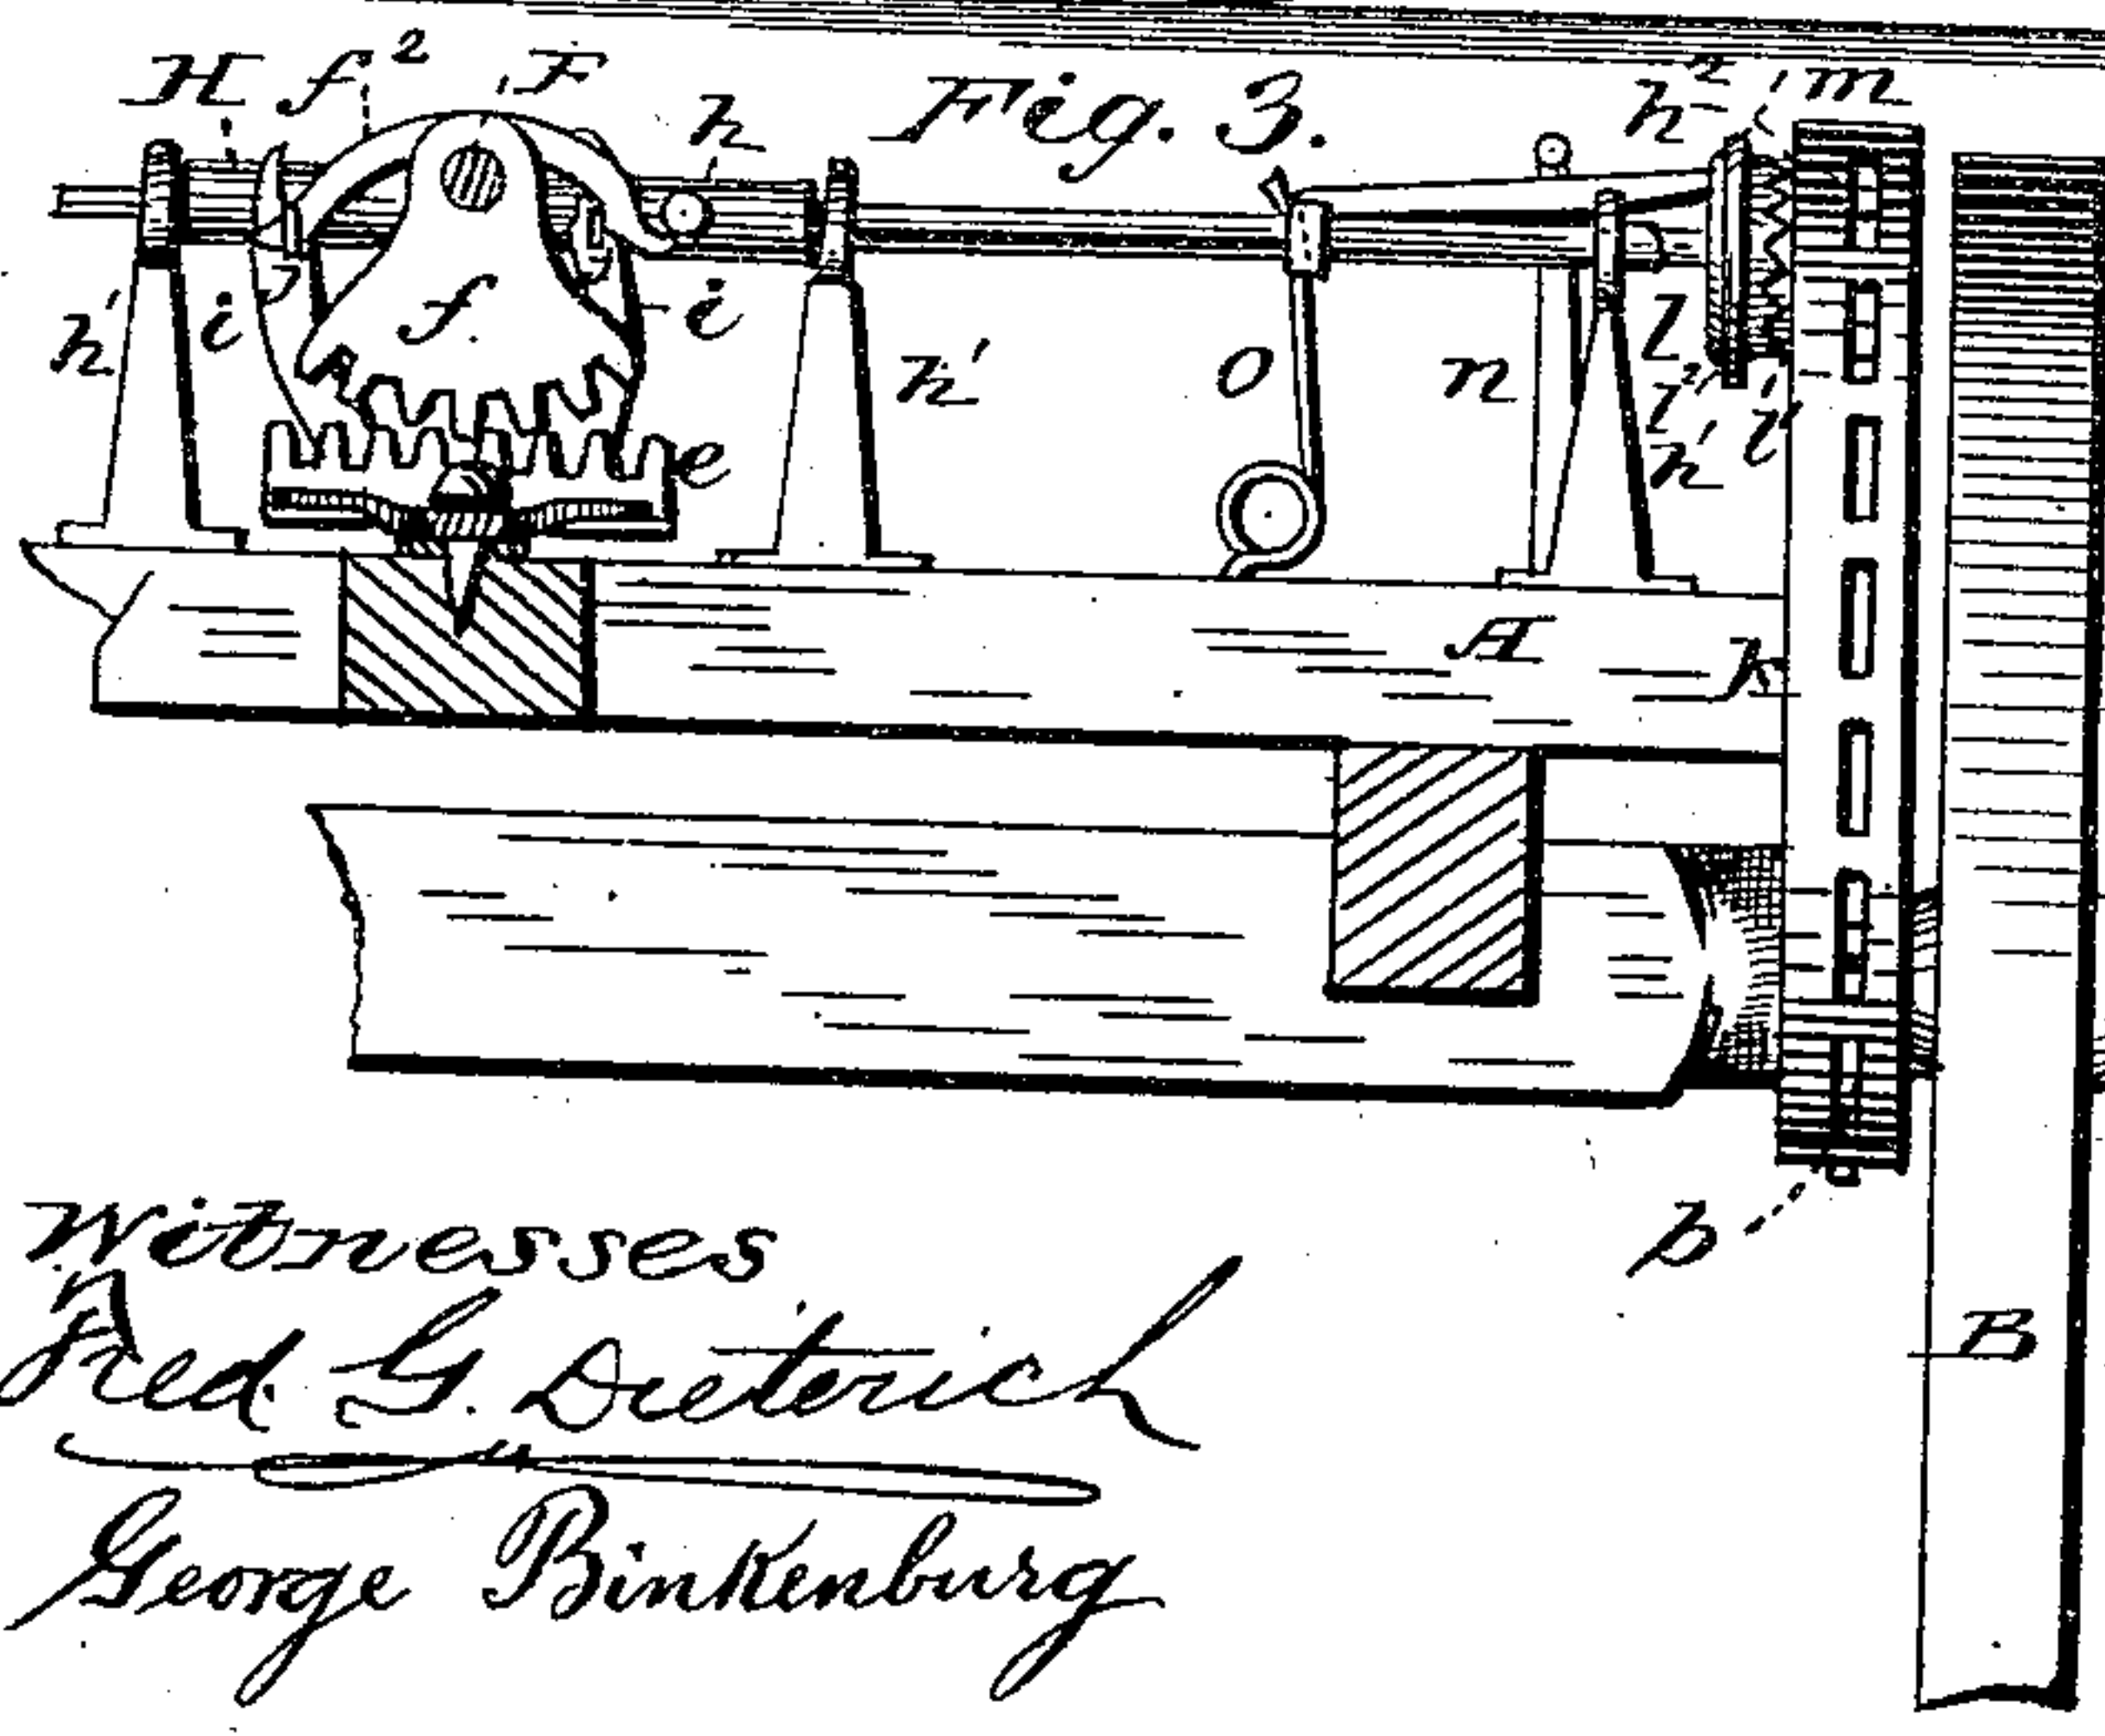 H f² F Fig. 3. h² m
h
h' i f. i h' o n l
l² l'
h'
e
A k
p
Witnesses
Fred. G. Dieterich
George Binkenburg
B